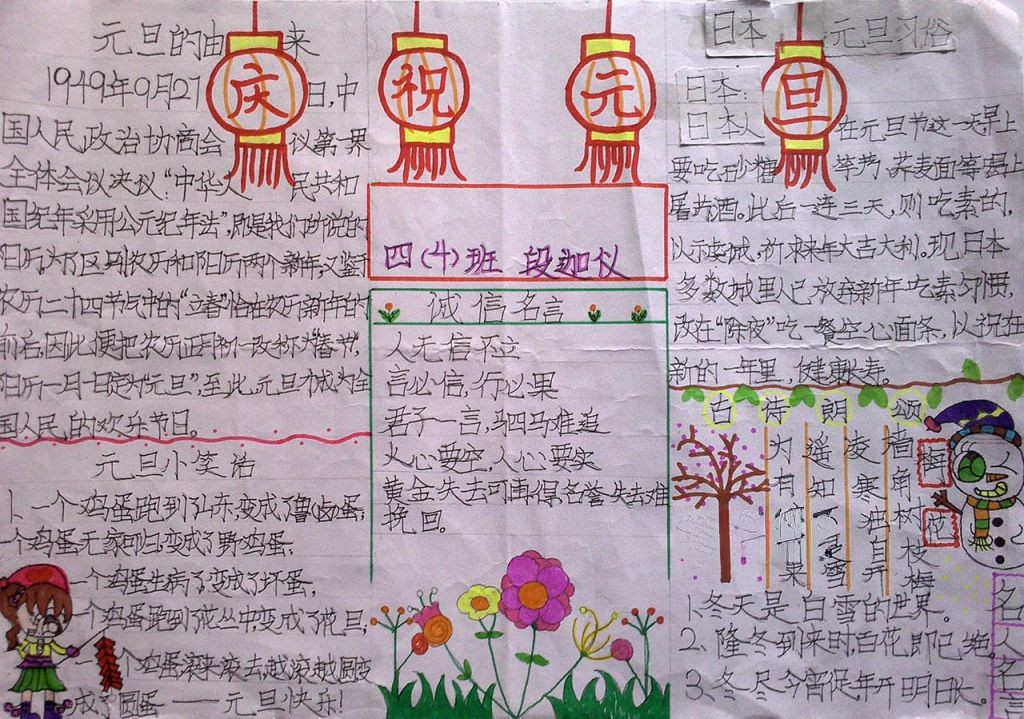 庆 祝 元 旦
元旦的由来
1949年9月27日,中
国人民政治协商会议第一界
全体会议决议“中华人民共和
国纪年采用公元纪年法”,即是我们所说的
阳历,为了区别农历和阳历两个新年,又鉴于
农历二十四节气中的“立春”恰在农历新年的
前后,因此便把农历正月初一改称为“春节”,
阳历一月一日定为“元旦”,至此,元旦才成为全
国人民的欢乐节日。
元旦小笑话
1、一个鸡蛋跑到山东,变成了鲁卤蛋;
一个鸡蛋无家可归,变成了野鸡蛋;
一个鸡蛋生病了,变成了坏蛋;
一个鸡蛋跑到花丛中,变成了花旦;
一个鸡蛋滚来滚去,越滚越圆,变
成了圆蛋——元旦快乐!
四(4)班 段迦仪
诚信名言
人无信不立
言必信,行必果
君子一言,驷马难追
火心要空,人心要实
黄金失去可再得,名誉失去难
挽回。
日本 元旦习俗
日本:
日本人在元旦节这一天早上
要吃 糖 荸荠、荞麦面等,喝上
屠苏酒。此后一连三天,则吃素的,
以示虔诚,祈求来年大吉大利。现日本
多数城里人已放弃新年吃素习惯,
改在“除夜”吃一餐空心面条,以祝在
新的一年里,健康长寿。
古诗朗颂
梅
花
墙角数枝梅
凌寒独自开
遥知 雪
为有 果
1、冬天是白雪的世界。
2、隆冬到来时,百花即已绝
3、冬尽今宵促,年开明日长。
名人名言